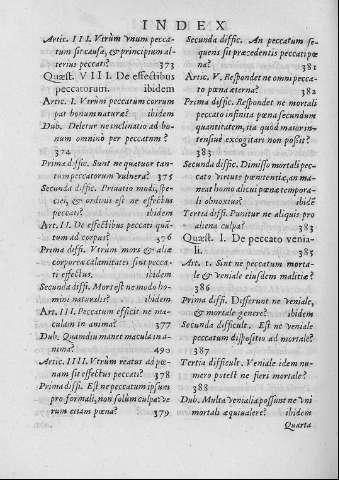 INDEX
Artic. III. Vtrùm vnum pecca-
tum sit causa, & principium al-
terius peccati? 373
Quæst. VIII. De effectibus
peccatorum. ibidem
Artic. I. Vtrùm peccatum corrum
pat bonum naturæ? ibidem
Dub. Deletur ne inclinatio ad bo-
num omninò per peccatum?
374
Prima diffic. Sunt ne quatuor tan-
tùm peccatorum vulnera? 375
Secunda diffic. Priuatio modi, spe-
ciei, & ordinis est ne effectus
peccati? ibidem
Art. II. De effectibus peccati quã-
tum ad corpus? 376
Prima diffi. Vtrùm mors & aliæ
corporeæ calamitates sint pecca-
ti effectus. ibidem
Secunda diffi. Mors est ne modo ho-
mini naturalis? ibidem
Art. III. Peccatum efficit ne ma-
culam in anima? 377
Dub. Quamdiu manet macula in a-
nima? 490
Artic. IIII. Vtrùm reatus ad pœ-
nam sit effectus peccati? 378
Prima diffi. Est ne peccatum ipsum
pro formali, non solùm culpa: ve-
rum etiam pœna? 379
Secunda diffic. An peccatum se-
quens sit præcedentis peccati pœ
na? 381
Artic. V. Respondet ne omni pecca-
to pœna æterna? 382
Prima diffic. Respondet ne mortali
peccato infinita pœna secundum
quantitatem, ita quòd maior in-
tensiuè excogitari non possit?
383
Secunda diffic. Dimisso mortali pec-
cato virtute pœnitentiæ, an ma-
neat homo alicui pœnæ tempora-
li obnoxius? ibidẽ
Tertia diffi. Punitur ne aliquis pro
aliena culpa? 383
Quæst. I. De peccato venia-
li. 385
Art. 1. Sint ne peccatum morta-
le & veniale eiusdem malitiæ?
386
Prima diffi. Differunt ne veniale,
& mortale genere? ibidem
Secunda difficult. Est ne veniale
peccatum dispositio ad mortale?
387
Tertia difficult. Veniale idem nu-
mero potest ne fieri mortale?
388
Dub. Multa venialia possunt ne vni
mortali æquiualere? ibidem
Quarta